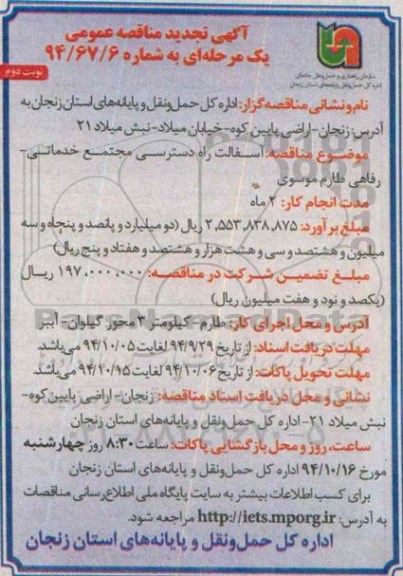 آگهی تجدید مناقصه عمومی
یک مرحله‌ای به شماره ۹۴/۶۷/۶
نوبت دوم
سازمان راهداری و حمل‌ونقل جاده‌ای
اداره کل حمل‌ونقل و پایانه‌های استان زنجان
نام‌و‌نشانی مناقصه‌گزار: اداره کل حمل‌ونقل و پایانه‌های استان زنجان به
آدرس: زنجان-اراضی پایین کوه-خیابان میلاد-نبش میلاد ۲۱
موضوع مناقصه: آسفالت راه دسترسی مجتمع خدماتی-
رفاهی طارم موسوی
مدت انجام کار: ۲ ماه
مبلغ برآورد: ۲.۵۵۳.۸۳۸.۸۷۵ ریال (دو میلیارد و پانصد و پنجاه و سه
میلیون و هشتصد و سی و هشت هزار و هشتصد و هفتاد و پنج ریال)
مبلغ تضمین شرکت در مناقصه: ۱۹۷.۰۰۰.۰۰۰ ریال
(یکصد و نود و هفت میلیون ریال)
آدرس و محل اجرای کار: طارم-کیلومتر ۳ محور گیلوان-آببر
مهلت دریافت اسناد: از تاریخ ۹۴/۹/۲۹ لغایت ۹۴/۱۰/۰۵ می‌باشد
مهلت تحویل پاکات: از تاریخ ۹۴/۱۰/۰۶ لغایت ۹۴/۱۰/۱۵ می‌باشد
نشانی و محل دریافت اسناد مناقصه: زنجان-اراضی پایین‌کوه-
نبش میلاد ۲۱-اداره کل حمل‌ونقل و پایانه‌های استان زنجان
ساعت، روز و محل بازگشایی پاکات: ساعت ۸:۳۰ روز چهارشنبه
مورخ ۹۴/۱۰/۱۶ اداره کل حمل‌ونقل و پایانه‌های استان زنجان
برای کسب اطلاعات بیشتر به سایت پایگاه ملی اطلاع‌رسانی مناقصات
به آدرس: http://iets.mporg.ir مراجعه شود.
اداره کل حمل‌ونقل و پایانه‌های استان زنجان